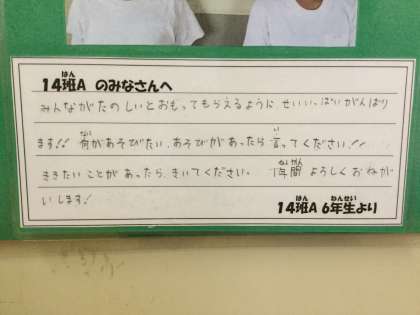 14班A のみなさんへ
みんながたのしいとおもってもらえるように せいいっぱいがんばり
ます!! 何があそびたい、あそびがあったら 言ってください!!
ききたいことがあったら、きいてください。 1年間 よろしくおねが
いします!
14班A 6年生より